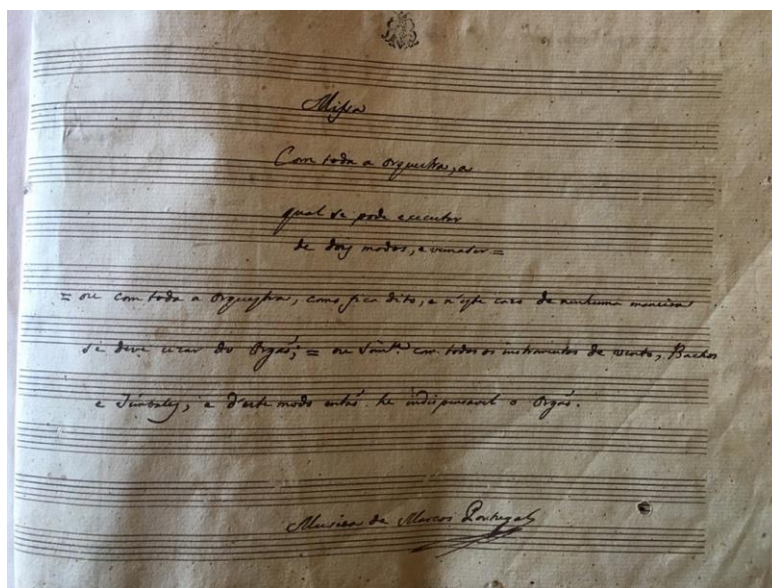 Missa
Com toda a Orquestra, a
qual se pode executar
de dois modos, a
= ou com toda a Orquestra, como fica dito, e n'este cazo de nenhuma maneira
se deve uzar do Orgaõ; = ou com todos os instrumentos de vento, Bachos
e Timbales, e d'este modo entaõ he indispensavel o Orgaõ.
Musica de Marcos Portugal